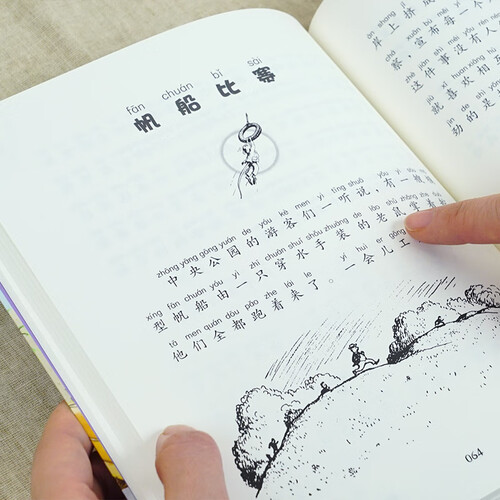 fān chuán bǐ sài
帆船比赛
zhōng yāng gōng yuán de yóu kè men yì tīng shuō yǒu yì
中央公园的游客们一听说，有一
xíng fān chuán yóu yì zhī chuān shuǐ shǒu zhuāng de lǎo shǔ zhǎng zhe
型帆船由一只穿水手装的老鼠掌着
tā men quán dōu pǎo zhe lái le yí huìr gōng
他们全都跑着来了。一会儿工
064
àn shang jǐ
岸上挤
chá xuān bù měi yí
察，宣布每一个
zhè jiàn shì méi yǒu rén
这件事没有人
jiù xǐ huan xiāng
就喜欢相
jìn de shì
劲的是